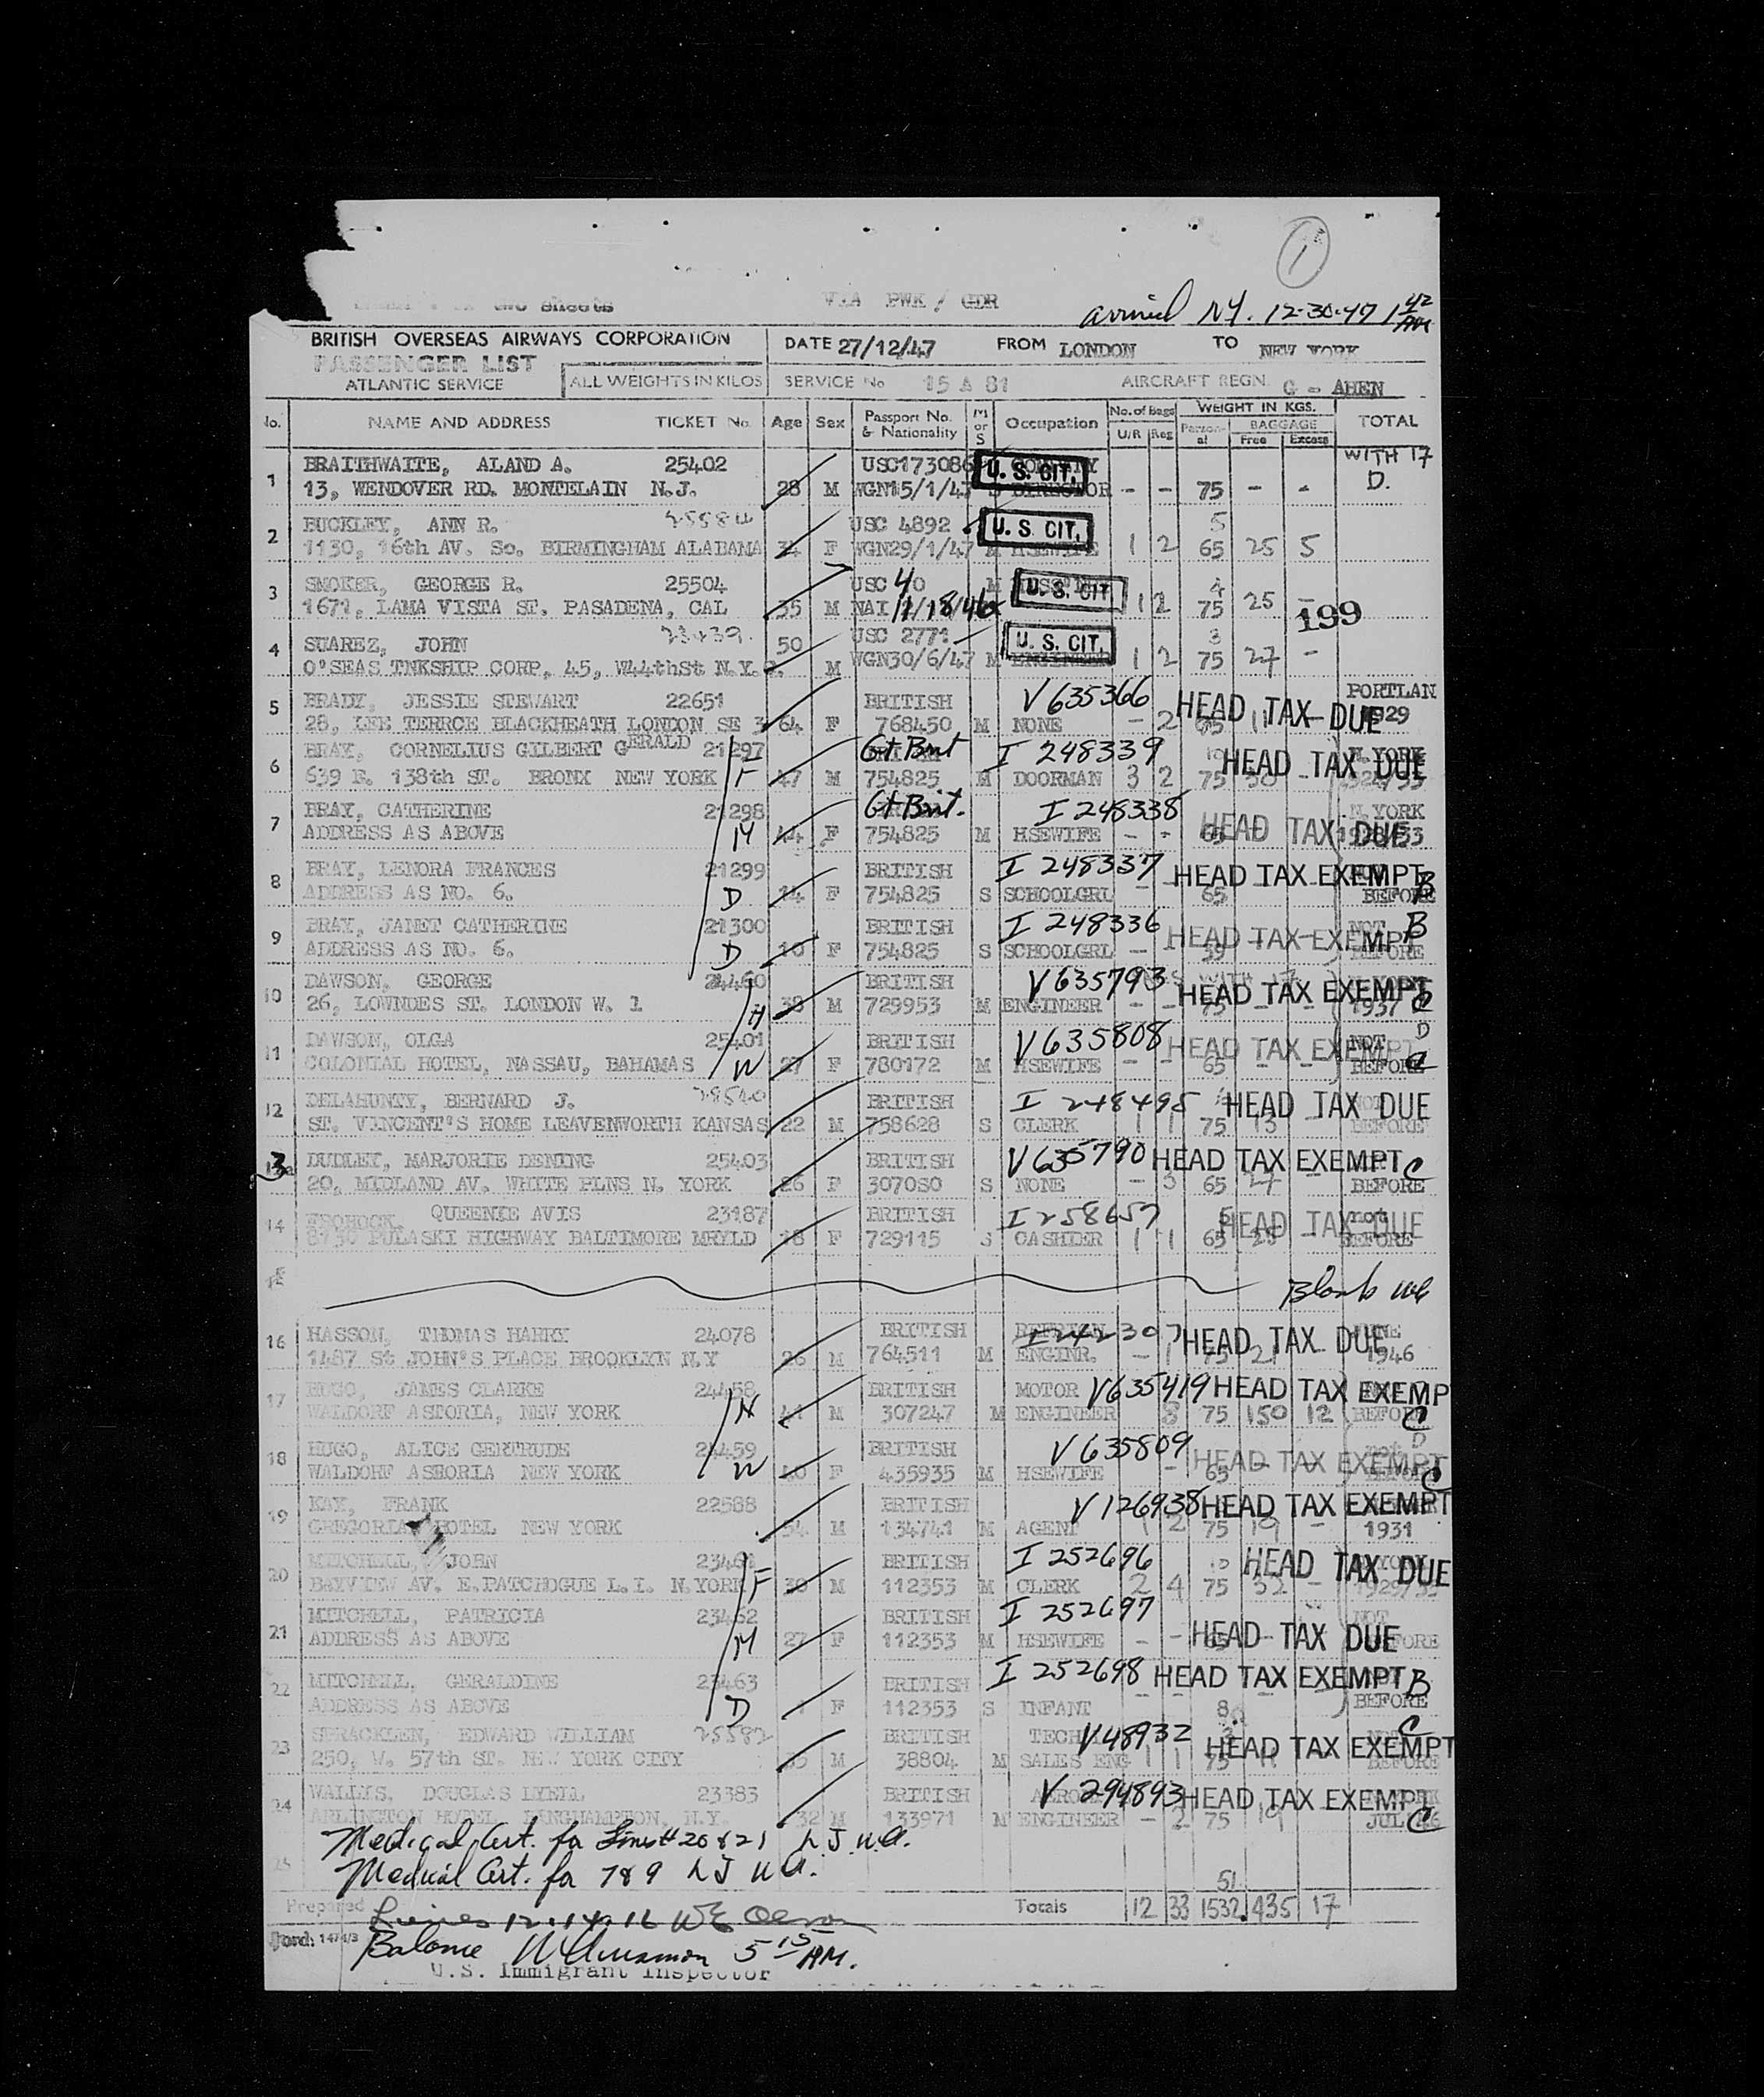 1
two sheets
VIA PWK / GDR
arrived N.Y. 12-30-47 1 42 AM
BRITISH OVERSEAS AIRWAYS CORPORATION
DATE 27/12/47 FROM LONDON TO NEW YORK
PASSENGER LIST
ATLANTIC SERVICE
ALL WEIGHTS IN KILOS
SERVICE No 15 A 81 AIRCRAFT REGN. G - AHEN
No. NAME AND ADDRESS TICKET No. Age Sex Passport No. & Nationality M or S Occupation No. of Bags U/R Reg WEIGHT IN KGS. Personal BAGGAGE Free Excess TOTAL
1 BRAITHWAITE, ALAND A. 25402 USC173086 U. S. CIT. WITH 17
13, WENDOVER RD. MONTELAIN N.J. 28 M WGN15/1/47 S DIRECTOR - - 75 - - D.
2 BUCKLEY, ANN R. 25584 USC 4892 U. S. CIT. 5
1130, 16th AV. So. BIRMINGHAM ALABAMA 34 F WGN29/1/47 M HSEWIFE 1 2 65 25 5
3 SMOKER, GEORGE R. 25504 USC 40 M U. S. CIT. 4
1671, LAMA VISTA ST. PASADENA, CAL 35 M NAI 11/18/46 1 2 75 25 - 199
4 SUAREZ, JOHN 23439 50 USC 2771 U. S. CIT. 3
O'SEAS TNKSHIP CORP, 45, W44thSt N.Y. M WGN30/6/47 M ENGINEER 1 2 75 27 -
5 BRADY, JESSIE STEWART 22651 BRITISH V635366 HEAD TAX DUE PORTLAN
28, LEE TERRCE BLACKHEATH LONDON SE 3 64 F 768450 M NONE - 2 65 11 - 1929
6 BRAY, CORNELIUS GILBERT GERALD 21297 Gt Brit I 248339 HEAD TAX DUE N. YORK
639 E. 138th ST. BRONX NEW YORK F 47 M 754825 M DOORMAN 3 2 75 50 -
7 BRAY, CATHERINE 21298 Gt Brit. I 248338 HEAD TAX DUE N. YORK
ADDRESS AS ABOVE M 44 F 754825 M HSEWIFE - - 65
8 BRAY, LENORA FRANCES 21299 BRITISH I 248337 HEAD TAX EXEMPT B
ADDRESS AS NO. 6. D 14 F 754825 S SCHOOLGRL - - 65 BEFORE
9 BRAY, JANET CATHERINE 21300 BRITISH I 248336 HEAD TAX EXEMPT NOT B
ADDRESS AS NO. 6. D 10 F 754825 S SCHOOLGRL - 39 BEFORE
10 DAWSON, GEORGE 24460 BRITISH V635793 HEAD TAX EXEMPT
26, LOWNDES ST. LONDON W. 1 H 38 M 729953 M ENGINEER - - 75 - - 1937 C
11 DAWSON, OLGA 25401 BRITISH V635808 HEAD TAX EXEMPT NOT D
COLONIAL HOTEL, NASSAU, BAHAMAS W 27 F 780172 M HSEWIFE - - 65 - - BEFORE C
12 DELAHUNTY, BERNARD J. 28540 BRITISH I 248495 HEAD TAX DUE
ST. VINCENT'S HOME LEAVENWORTH KANSAS 22 M 758628 S CLERK 1 1 75 13 BEFORE
13 DUDLEY, MARJORIE DENING 25403 BRITISH V635790 HEAD TAX EXEMPT C
20, MIDLAND AV. WHITE PLNS N. YORK 26 F 307080 S NONE - 3 65 27 - BEFORE
14 QUEENIE AVIS 23187 BRITISH I 258657 HEAD TAX DUE not
8730 PULASKI HIGHWAY BALTIMORE MRYLD 18 F 729115 S CASHIER 1 1 65 25 - BEFORE
15 Blank
16 HASSON, THOMAS HARRY 24078 BRITISH I242307 HEAD TAX DUE JUNE
1487 St JOHN'S PLACE BROOKLYN N.Y 26 M 764511 M ENGINR. - 1 75 21 - 1946
17 HUGO, JAMES CLARKE 24458 BRITISH MOTOR V635419 HEAD TAX EXEMP
WALDORF ASTORIA, NEW YORK H 41 M 307247 M ENGINEER 8 75 150 12 BEFORE C
18 HUGO, ALICE GERTRUDE 24459 BRITISH V635809 HEAD TAX EXEMPT not D
WALDORF ASHORIA NEW YORK W 40 F 435935 M HSEWIFE - 65 - - C
19 KAY, FRANK 22588 BRITISH V126938 HEAD TAX EXEMPT
GREGORIAN HOTEL NEW YORK 54 M 134741 M AGENT 1 2 75 19 - 1931
20 MITCHELL, JOHN 23461 BRITISH I 252696 HEAD TAX DUE
BAYVIEW AV. E.PATCHOGUE L.I. N.YORK F 30 M 112353 M CLERK 2 4 75 52 -
21 MITCHELL, PATRICIA 23462 BRITISH I 252697 HEAD TAX DUE NOT
ADDRESS AS ABOVE M 27 F 112353 M HSEWIFE - - 65 BEFORE
22 MITCHELL, GERALDINE 23463 BRITISH I 252698 HEAD TAX EXEMPT B
ADDRESS AS ABOVE D 1 F 112353 S INFANT 8 BEFORE
23 SPRACKLEN, EDWARD WILLIAM 25582 BRITISH TECH V48932 HEAD TAX EXEMPT C
250, W. 57th ST. NEW YORK CITY M 38804 M SALES ENG 1 1 75 11 BEFORE
24 WALLIS, DOUGLAS LYELL 23383 BRITISH AERO V 294893 HEAD TAX EXEMPT
ARLINGTON HOTEL, BINGHAMPTON, N.Y. 32 M 133971 M ENGINEER - 2 75 19 JUL C
Medical Cert. for Lines # 20 & 21
25 Medical Cert. for 7 8 9
51
Prepared Lines 12.14.16 Totals 12 33 1532 435 17
Balance 5 15 AM.
U.S. Immigrant Inspector